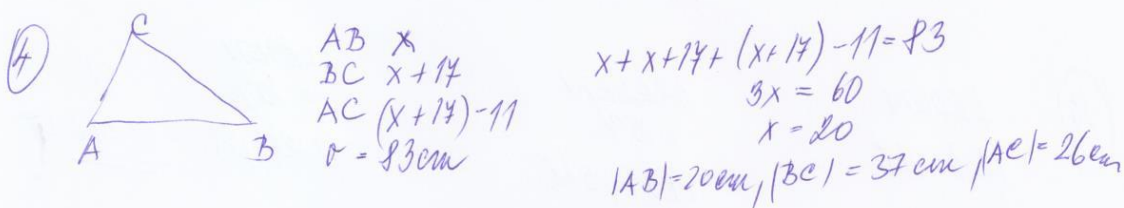 4
C
A B
AB x
BC x+17
AC (x+17)-11
o = 83cm
x+x+17+(x+17)-11=83
3x = 60
x = 20
|AB|=20cm, |BC|=37cm, |AC|=26cm